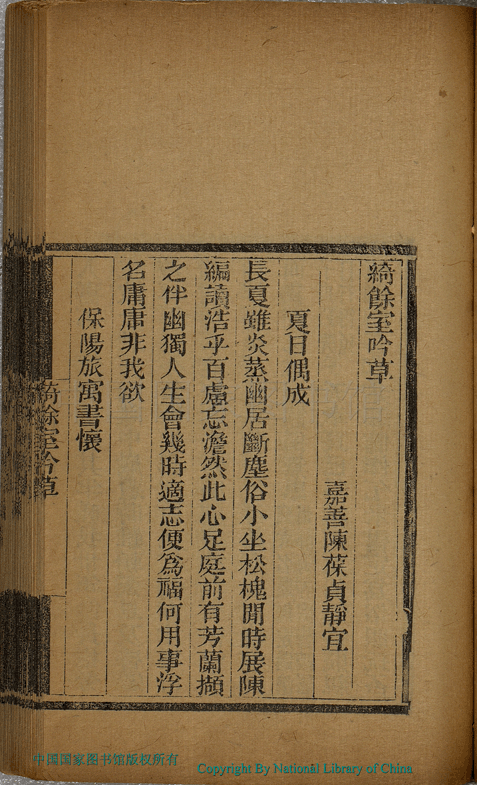 綺餘室吟草
嘉善陳葆貞靜宜
夏日偶成
長夏雖炎蒸幽居斷塵俗小坐松槐閒時展陳
編讀浩乎百慮忘澹然此心足庭前有芳蘭擷
之伴幽獨人生會幾時適志便為福何用事浮
名庸庸非我欲
保陽旅寓書懷
綺餘室吟草
中国国家图书馆版权所有
Copyright By National Library of China